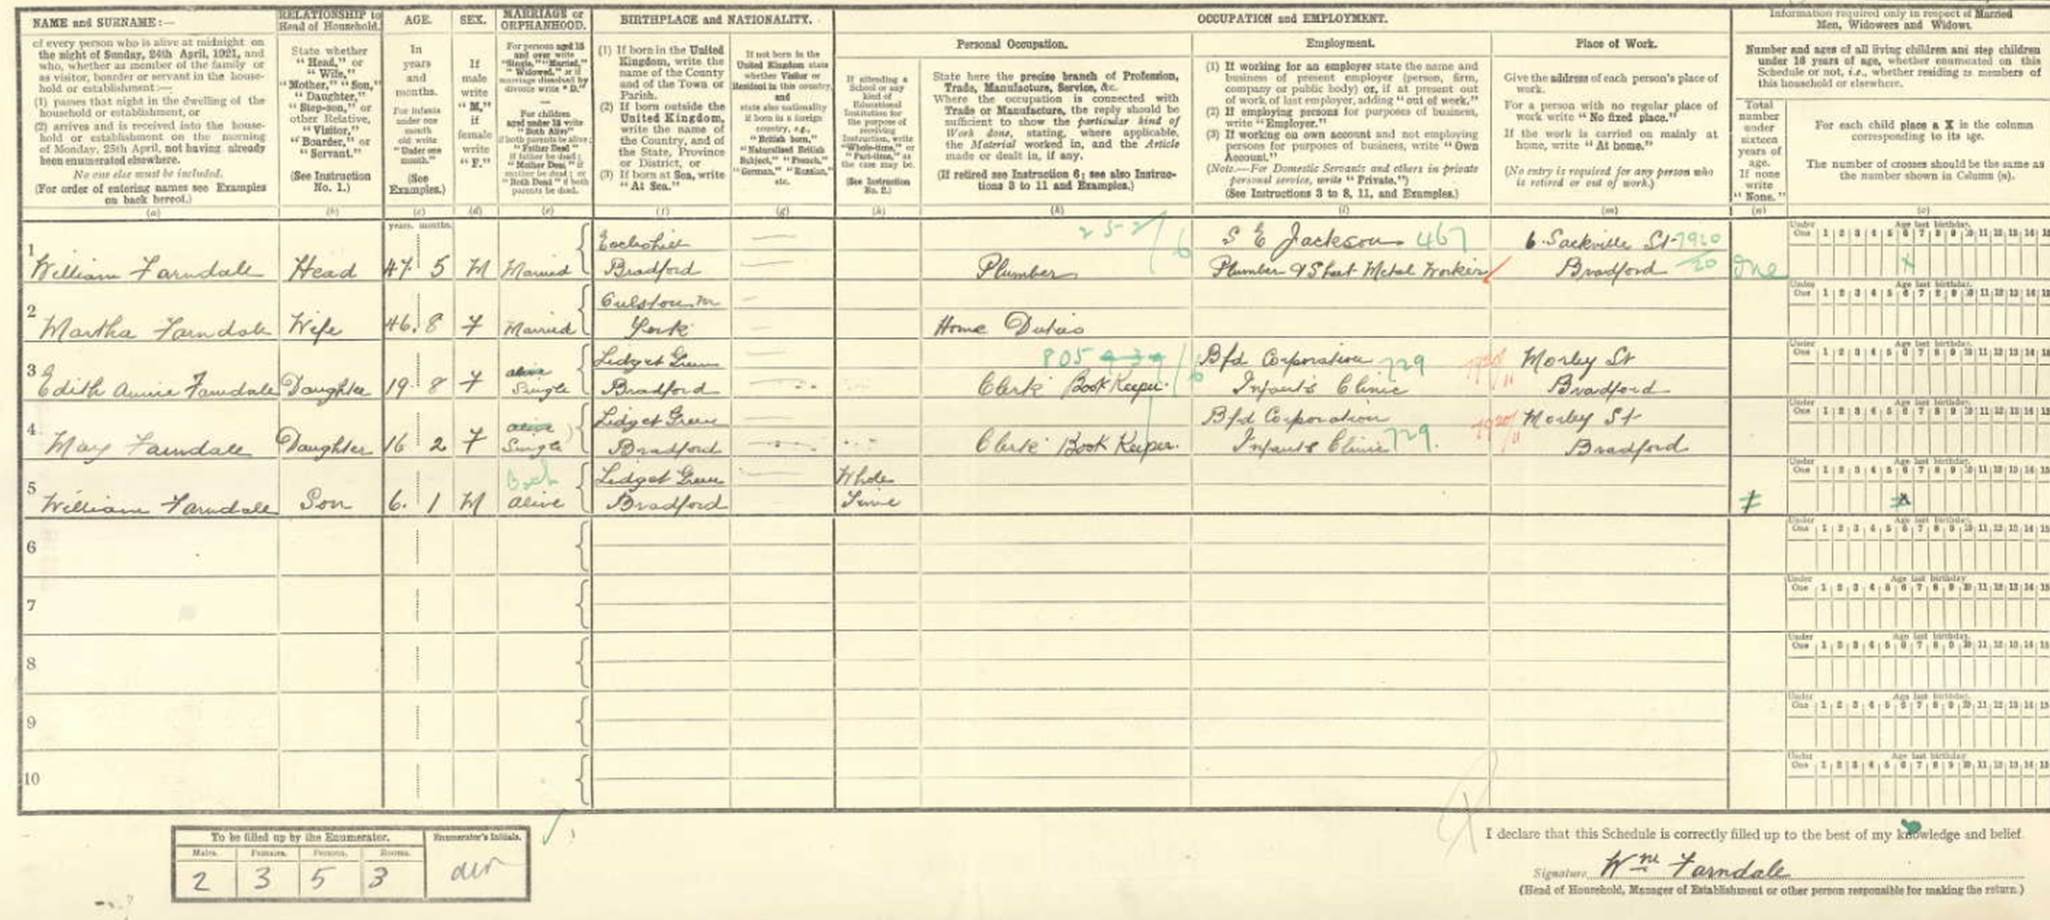 NAME and SURNAME:—
of every person who is alive at midnight on
the night of Sunday, 24th April, 1921, and
who, whether as member of the family or
as visitor, boarder or servant in the house-
hold or establishment:—
(1) passes that night in the dwelling of the
household or establishment, or
(2) arrives and is received into the house-
hold or establishment on the morning
of Monday, 25th April, not having already
been enumerated elsewhere.
No one else must be included.
(For order of entering names see Examples
on back hereof.)
(a)
RELATIONSHIP to
Head of Household.
State whether
"Head," or
"Wife,"
"Mother," "Son,"
"Daughter,"
"Step-son," or
other Relative,
"Visitor,"
"Boarder," or
"Servant."
(See Instruction
No. 1.)
(b)
AGE.
In
years
and
months.
For infants
under one
month
old write
"Under one
month."
(See
Examples.)
(c)
SEX.
If
male
write
"M,"
if
female
write
"F."
(d)
MARRIAGE or
ORPHANHOOD.
For persons aged 15
and over write
"Single," "Married,"
"Widowed," or if
marriage dissolved by
divorce write "D."
For children
aged under 15 write
"Both Alive"
if both parents be alive;
"Father Dead"
if father be dead;
"Mother Dead" if
mother be dead; or
"Both Dead" if both
parents be dead.
(e)
BIRTHPLACE and NATIONALITY.
(1) If born in the United
Kingdom, write the
name of the County
and of the Town or
Parish.
(2) If born outside the
United Kingdom,
write the name of
the Country, and of
the State, Province
or District, or
(3) If born at Sea, write
"At Sea."
(f)
If not born in the
United Kingdom state
whether Visitor or
Resident in this country,
and
state also nationality
if born in a foreign
country, e.g.,
"British born,"
"Naturalised British
Subject," "French,"
"German," "Russian,"
etc.
(g)
If attending a
School or any
kind of
Educational
Institution for
the purpose of
receiving
Instruction, write
"Whole-time," or
"Part-time," as
the case may be.
(See Instruction
No. 2.)
(h)
OCCUPATION and EMPLOYMENT.
Personal Occupation.
State here the precise branch of Profession,
Trade, Manufacture, Service, &c.
Where the occupation is connected with
Trade or Manufacture, the reply should be
sufficient to show the particular kind of
Work done, stating, where applicable,
the Material worked in, and the Article
made or dealt in, if any.
(If retired see Instruction 6; see also Instruc-
tions 3 to 11 and Examples.)
(k)
Employment.
(1) If working for an employer state the name and
business of present employer (person, firm,
company or public body) or, if at present out
of work, of last employer, adding "out of work."
(2) If employing persons for purposes of business,
write "Employer."
(3) If working on own account and not employing
persons for purposes of business, write "Own
Account."
(Note.—For Domestic Servants and others in private
personal service, write "Private.")
(See Instructions 3 to 8, 11, and Examples.)
(l)
Place of Work.
Give the address of each person's place of
work.
For a person with no regular place of
work write "No fixed place."
If the work is carried on mainly at
home, write "At home."
(No entry is required for any person who
is retired or out of work.)
(m)
Information required only in respect of Married
Men, Widowers and Widows.
Number and ages of all living children and step children
under 16 years of age, whether enumerated on this
Schedule or not, i.e., whether residing as members of
this household or elsewhere.
Total
number
under
sixteen
years of
age.
If none
write
"None."
(n)
For each child place a X in the column
corresponding to its age.
The number of crosses should be the same as
the number shown in Column (n).
(o)
years. months.
1 William Farndale Head 47. 5 M Married Eccleshill Bradford Plumber S E Jackson 467 Plumber & Sheet Metal Worker 6. Sackville St Bradford One X
2 Martha Farndale Wife 46. 8 F Married York Home Duties
3 Edith Annie Farndale Daughter 19 8 F alive Single Lidget Green Bradford 805 Clerk Book Keeper. Bfd Corporation 729 Infants Clinic Morley St Bradford
4 May Farndale Daughter 16 2 F alive Single Lidget Green Bradford Clerk Book Keeper. Bfd Corporation Infants Clinic 729. Morley St Bradford
5 William Farndale Son 6. 1 M Both alive Lidget Green Bradford Whole Time
6
7
8
9
10
Under One Age last birthday. 1 2 3 4 5 6 7 8 9 10 11 12 13 14 15
To be filled up by the Enumerator.
Males. Females. Persons. Rooms.
2 3 5 3
Enumerator's Initials.
I declare that this Schedule is correctly filled up to the best of my knowledge and belief
Signature Wm Farndale
(Head of Household, Manager of Establishment or other person responsible for making the return.)